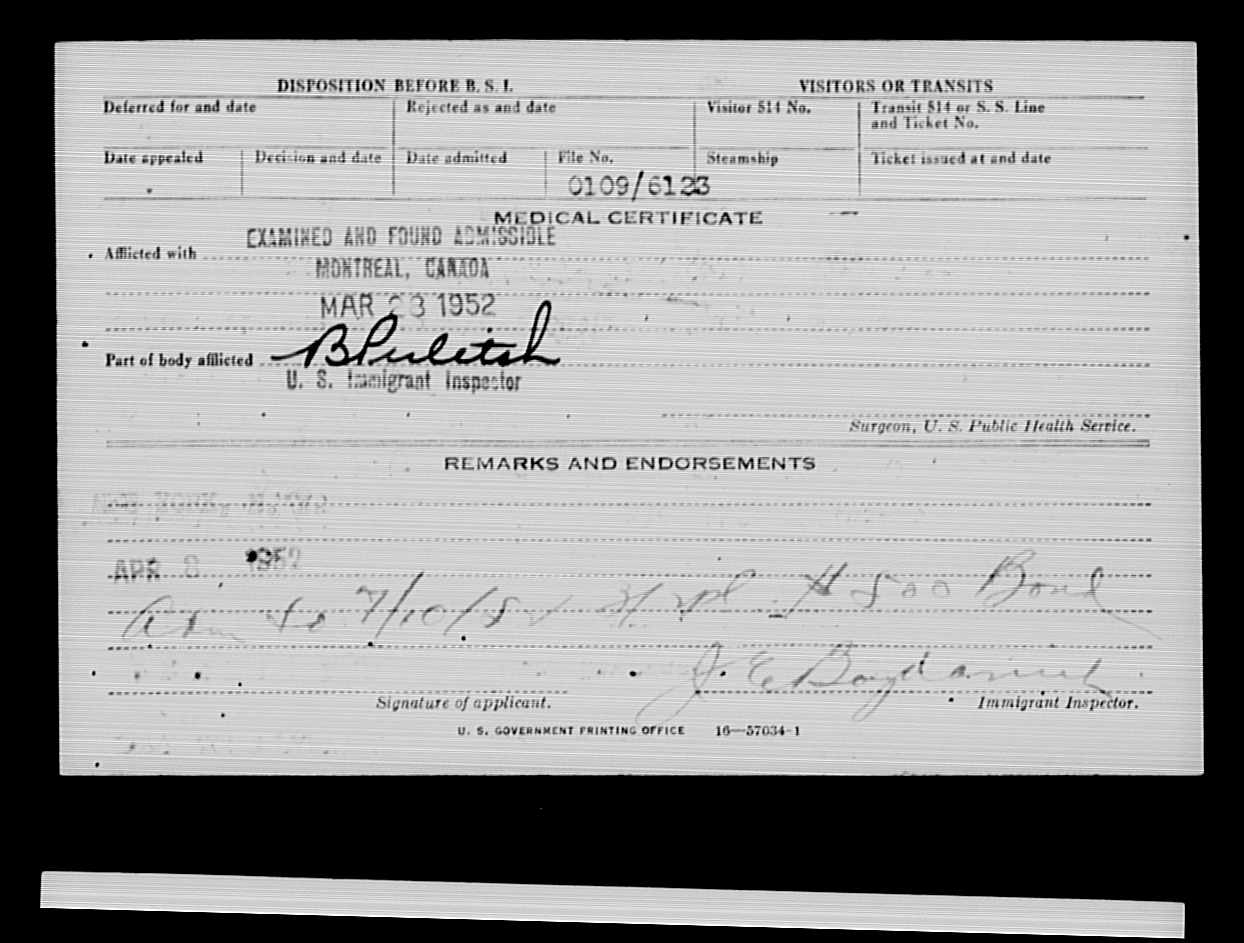 DISPOSITION BEFORE B. S. I.
VISITORS OR TRANSITS
Deferred for and date
Rejected as and date
Visitor 514 No.
Transit 514 or S. S. Line and Ticket No.
Date appealed
Decision and date
Date admitted
File No.
Steamship
Ticket issued at and date
0109/6123
MEDICAL CERTIFICATE
EXAMINED AND FOUND ADMISSIBLE
Afflicted with
MONTREAL, CANADA
MAR 28 1952
Part of body afflicted
U. S. Immigrant Inspector
Surgeon, U. S. Public Health Service.
REMARKS AND ENDORSEMENTS
NEW YORK, N.Y.
APR 8 1952
Adm to 7/10/52 $500 Bond
J. E.
Signature of applicant.
Immigrant Inspector.
U. S. GOVERNMENT PRINTING OFFICE 16—57034-1